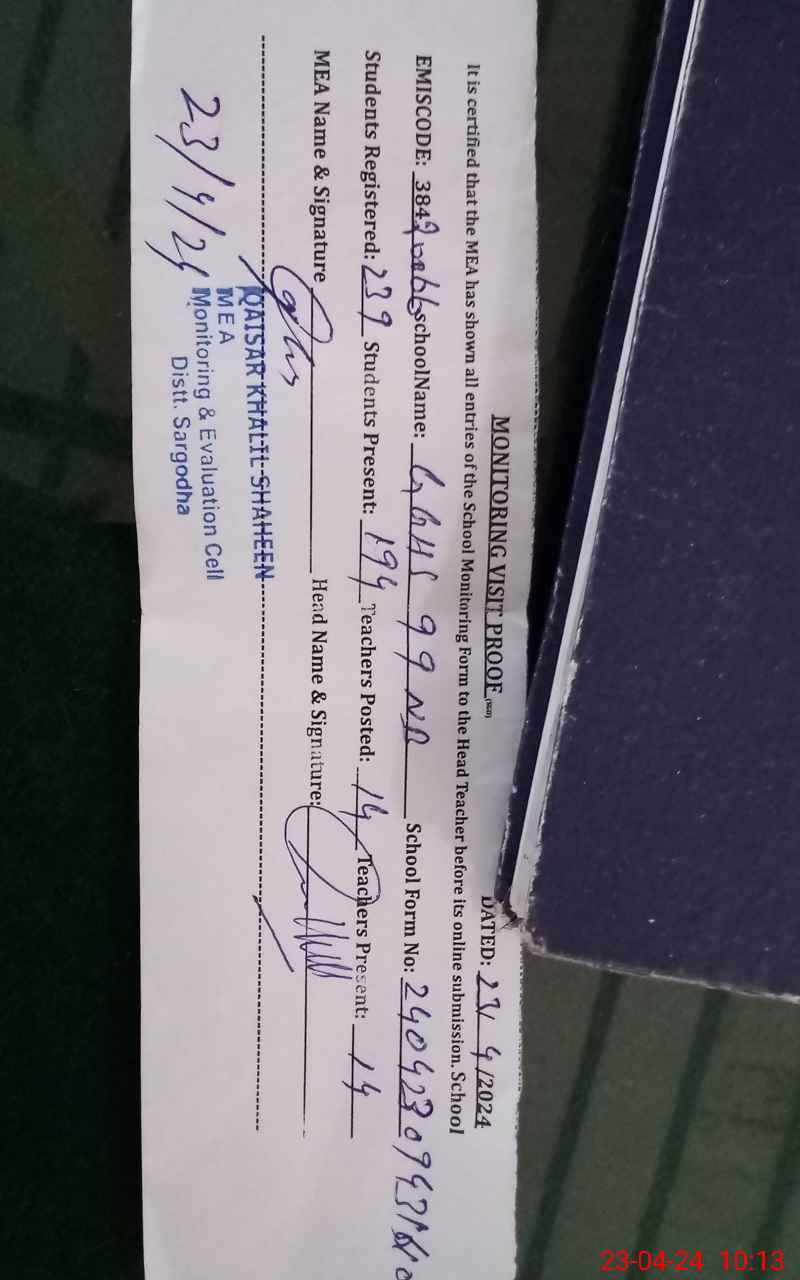 MONITORING VISIT PROOF (SED)
DATED: 23/ 4 /2024
It is certified that the MEA has shown all entries of the School Monitoring Form to the Head Teacher before its online submission. School
EMISCODE: 384 schoolName: GGHS 99 NB School Form No:
Students Registered: 239 Students Present: 194 Teachers Posted: 14 Teachers Present: 14
MEA Name & Signature Head Name & Signature:
QAISAR KHALIL SHAHEEN
M E A
Monitoring & Evaluation Cell
Distt. Sargodha
23/4/24
23-04-24 10:13